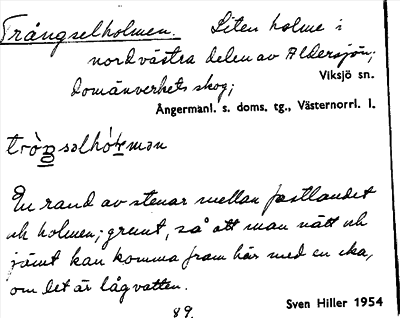 Trångselholmen. Liten holme i
nordvästra delen av Aldersjön;
Viksjö sn.
Domänverkets skog;
Ångermanl. s. doms. tg., Västernorrl. l.
En rand av stenar mellan fastlandet
och holmen; grunt, så att man nätt och
jämt kan komma fram här med en eka,
om det är lågvatten.
89.
Sven Hiller 1954